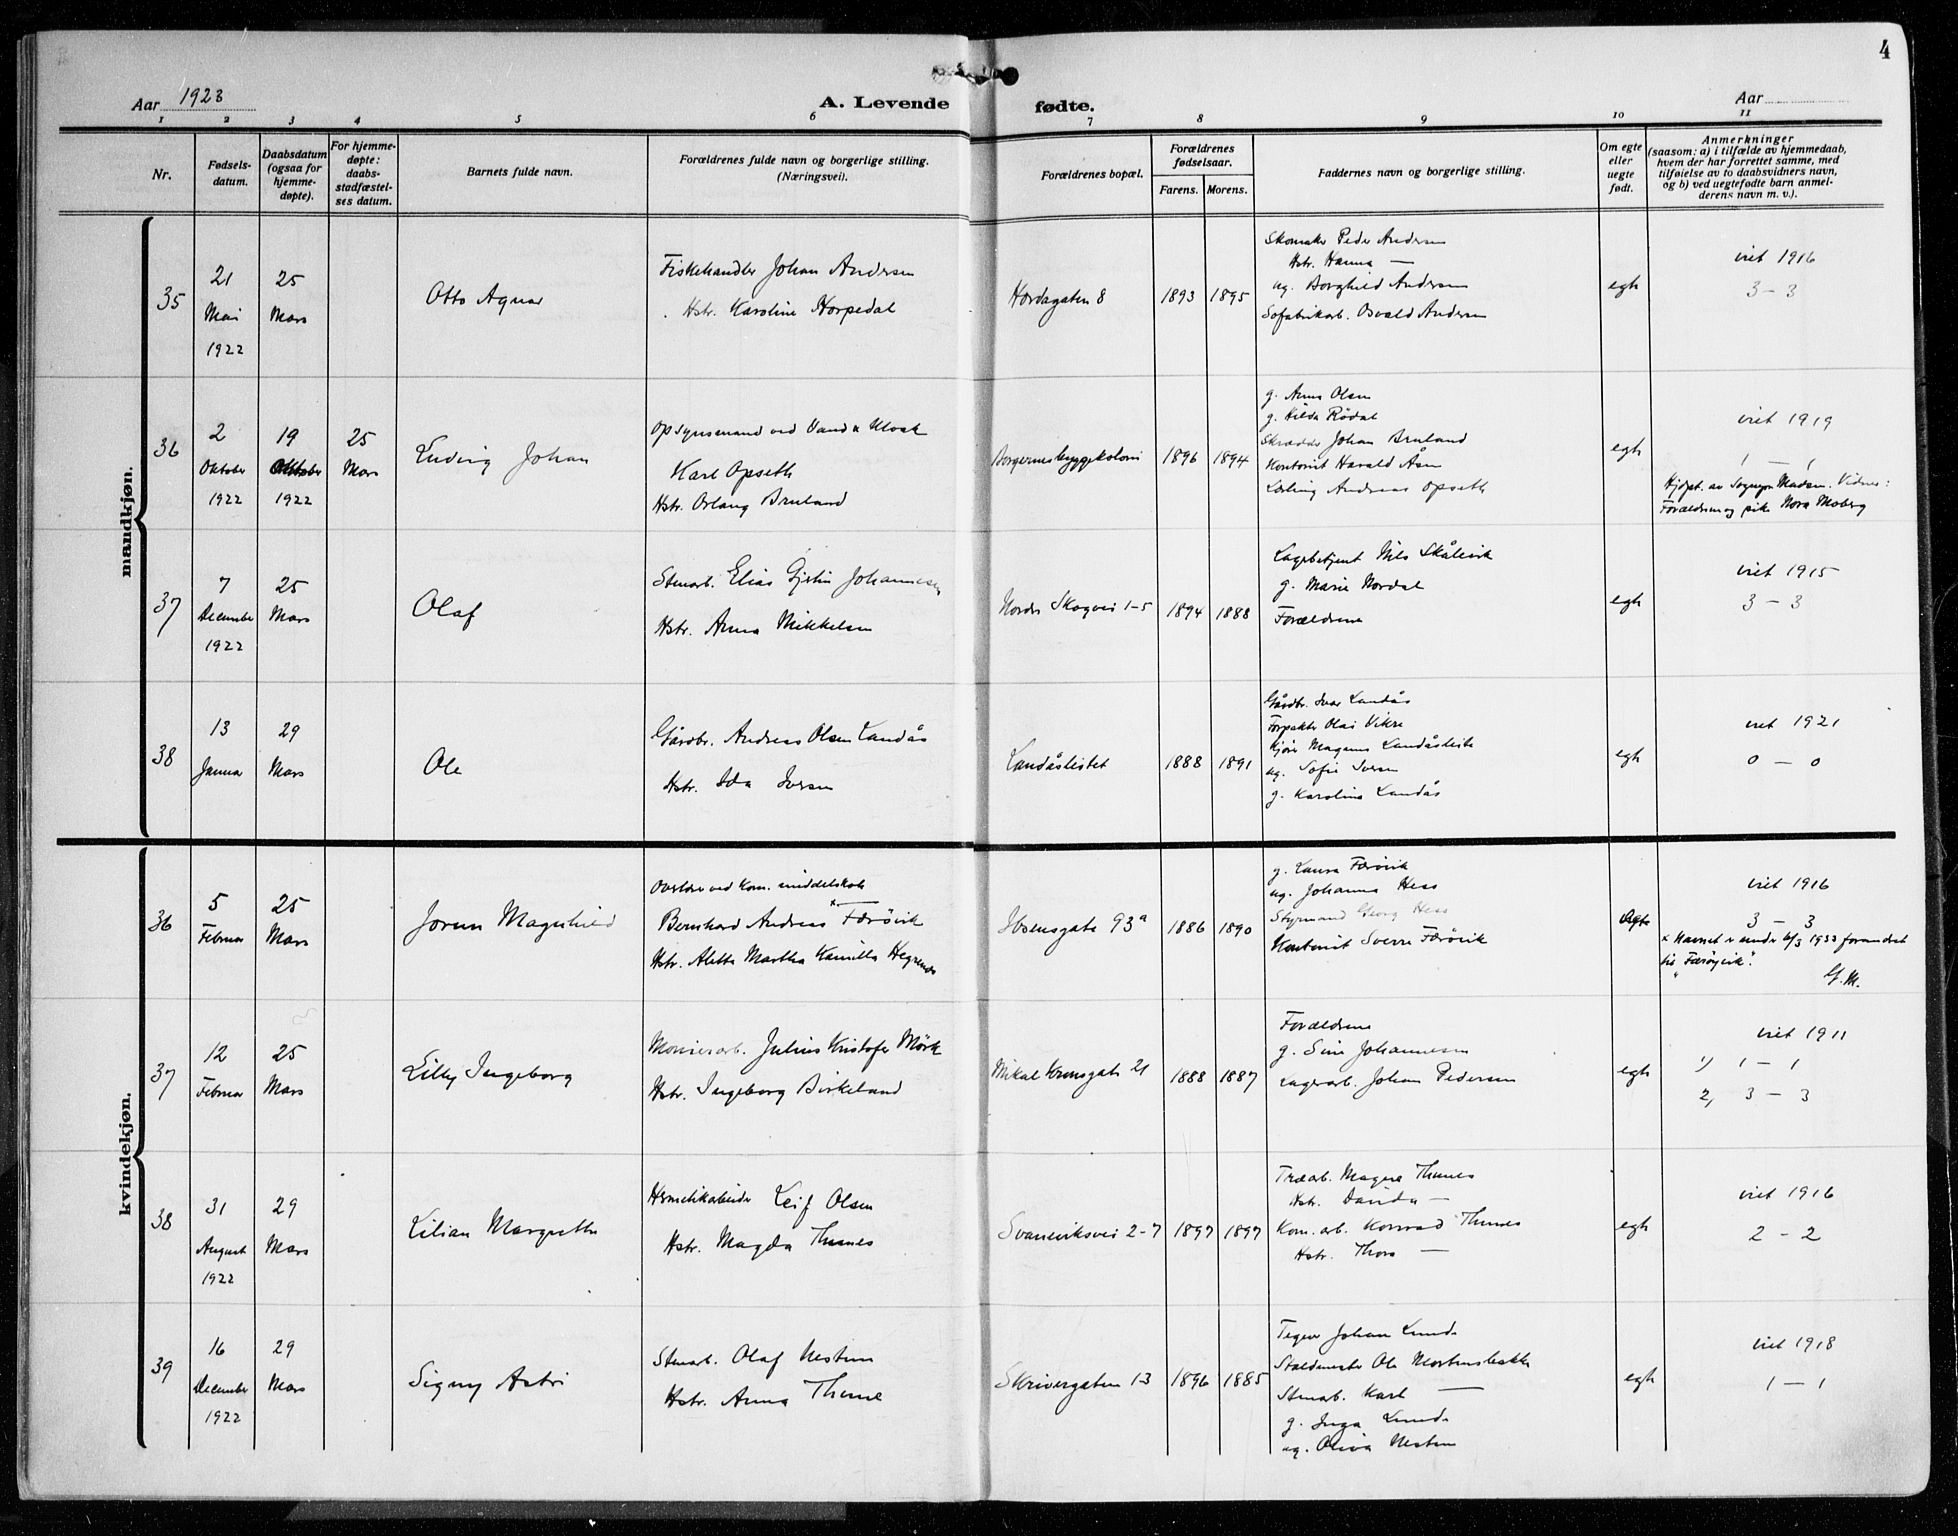 4
Aar 1923
A. Levende fødte.
Aar
1 2 3 4 5 6 7 8 9 10 11
Nr.
Fødsels-
datum.
Daabsdatum
(ogsaa for
hjemme-
døpte).
For hjemme-
døpte:
daabs-
stadfæstel-
ses datum.
Barnets fulde navn.
Forældrenes fulde navn og borgerlige stilling.
(Næringsvei).
Forældrenes bopæl.
Forældrenes
fødselsaar.
Farens. Morens.
Faddernes navn og borgerlige stilling.
Om egte
eller
uegte
født.
Anmerkninger
(saasom: a) i tilfælde av hjemmedaab,
hvem der har forrettet samme, med
tilføielse av to daabsvidners navn,
og b) ved uegtefødte barn anmel-
derens navn m. v.).
mandkjøn.
35
21
Mai
1922
25
Mars
Otto Agnar
Fiskehandler Johan Andersen
Hstr. Karoline Horpedal
Hordagaten 8
1893
1895
Skomaker Peder Andersen
Hstr. Hanna —
ug. Borghild Andersen
Sofabrikarb. Osvald Andersen
egte
viet 1916
3 – 3
36
2
Oktober
1922
19
Oktober
1922
25
Mars
Ludvig Johan
Opsynsmand ved Vand & Kloak
Karl Opseth
Hstr. Orlaug Bruland
Borgernes byggekoloni
1896
1894
g. Anna Olsen
g. Hilda Rødal
Skrædder Johan Bruland
Kontorist Harald Åsen
Lærling Andreas Opseth
egte
viet 1919
1 – 1
Hjdpt. av Sognepr. Madsen. Vidner:
Forældrene og pike Nora Moberg
37
7
December
1922
25
Mars
Olaf
Stenarb. Elias Gjertin Johannesen
Hstr. Anna Mikkelsen
Nordre Skogvei 1-5
1894
1888
Lagerbetjent Nils Skålevik
g. Marie Nordal
Forældrene
egte
viet 1915
3 – 3
38
13
Januar
29
Mars
Ole
Gårdbr. Andreas Olsen Landås
Hstr. Ida Iversen
Landåslistet
1888
1891
Gårdbr. Ivar Landås
Forpakter Olai Vikre
Kjører Magnus Landåsleite
ug. Sofie Iversen
g. Karoline Landås
egte
viet 1921
0 – 0
kvindekjøn.
36
5
Februar
25
Mars
Jorun Magnhild
Overlærer ved kom. middelskole
Bernhard Andreas × Færövik
Hstr. Aletta Martha Kamilla Hegrenæs
Ibsensgate 93a
1886
1890
g. Laura Færövik
ug. Johanna Hess
Styrmand Georg Hess
Kontorist Sverre Færövik
Ægte
viet 1916
3 – 3
× Navnet er under 6/3 1933 forandret
til "Færøyvik".
G. M.
37
12
Februar
25
Mars
Lilly Ingeborg
Monierarb. Julius Kristofer Mörk
Hstr. Ingeborg Birkeland
Mikal Kronsgate 21
1888
1887
Forældrene
g. Sine Johannesen
Lagerarb. Johan Pedersen
egte
viet 1911
1) 1 – 1
2, 3 – 3
38
31
August
1922
29
Mars
Lilian Margrethe
Hermetikarbeider Leif Olsen
Hstr. Magda Thunes
Svaneviksvei 2-7
1897
1897
Træarb. Magnus Thunes
Hstr. Davida —
Kom. arb. Konrad Thunes
Hstr. Thora —
egte
viet 1916
2 – 2
39
16
December
1922
29
Mars
Signy Astri
Stenarb. Olaf Nestun
Hstr. Anna Thune
Skrivergaten 13
1896
1885
Tegner Johan Lunde
Staldmester Ole Mortensbakke
Stenarb. Karl —
g. Inga Lunde
ug. Olivia Nestun
egte
viet 1918
1 – 1